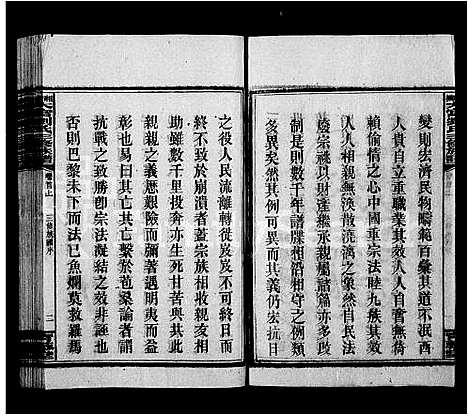 變則宏濟民物疇範百彙其道不泯西
人人貴自主重職業其效人人自奮無倚
賴偷情之心中國重宗法睦九族其效
人人相親無澆漓之象然自民法
宗祧以財產繼承親屬諸篇亦多改
制是則數千年譜牒相沿相守之類例
多異矣然其例可異而其義仍宏抗日
之役人民流離轉徙歲無甯日然
終不致於崩潰者蓋宗族相收親友相
助雖數千里投奔亦生死甘苦與共其
親親之義歷艱險而彌著遇明夷而益
彰也易曰其亡其亡繫於苞桑論者謂
抗戰之致勝卽宗法凝結之效非誣也
否則巴黎未下而法已魚爛莫救難為
卷首上
三修族譜序
二